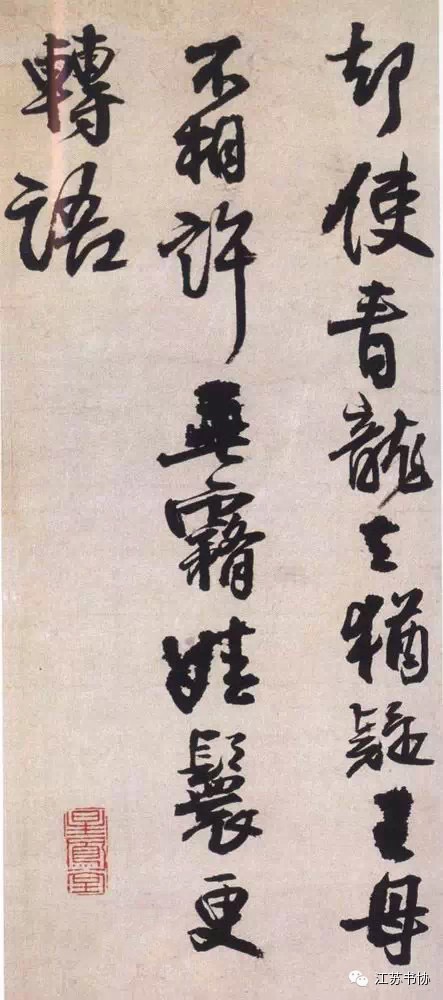 却使青龍去猶疑王母
不相許垂霧娃鬟更
轉語
星鳳堂
江苏书协